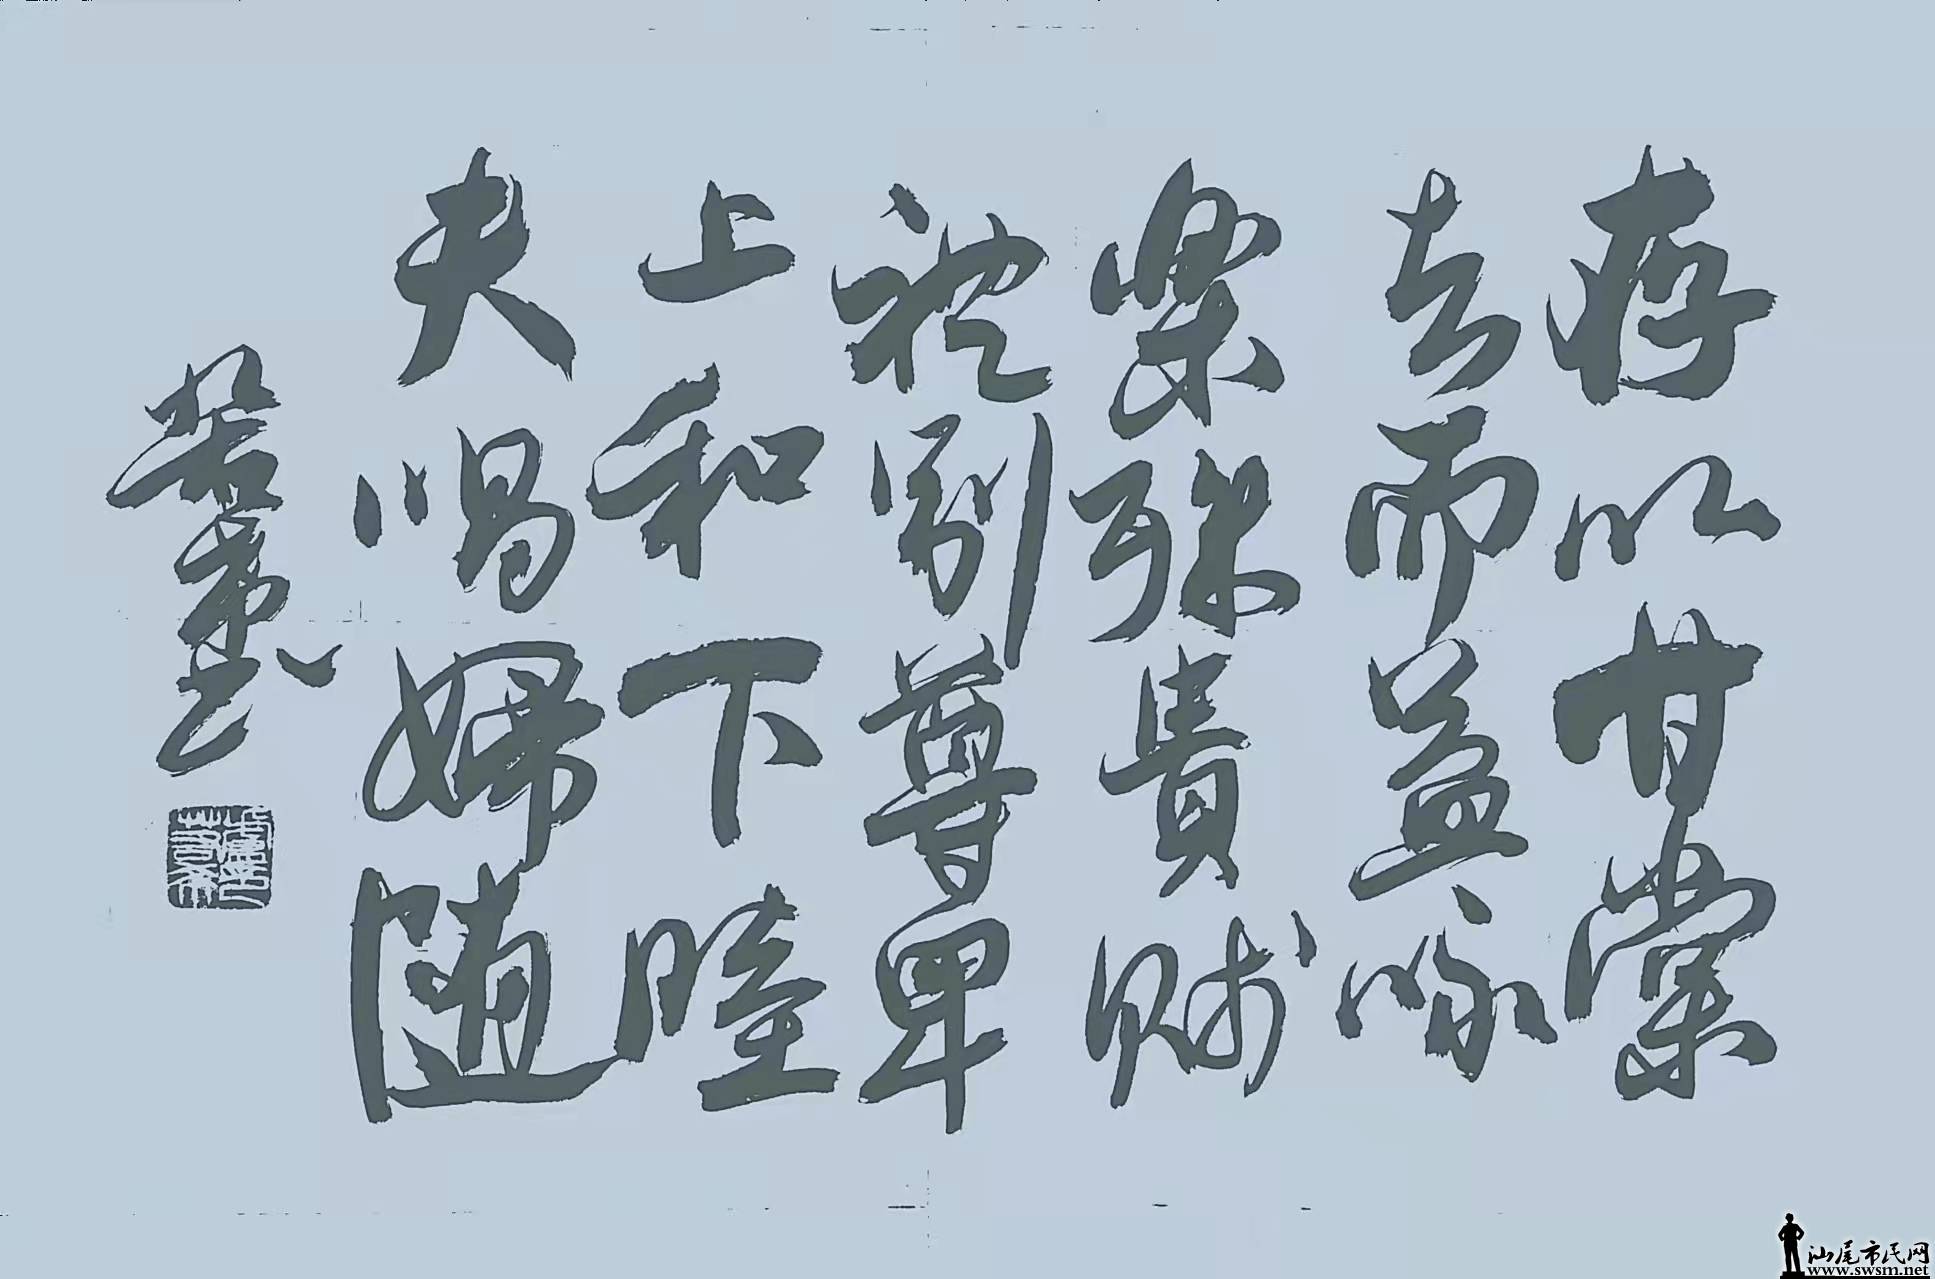 存以甘棠
去而益咏
樂殊貴賤
禮别尊卑
上和下睦
夫唱婦随
汕尾市民网
www.swsm.net